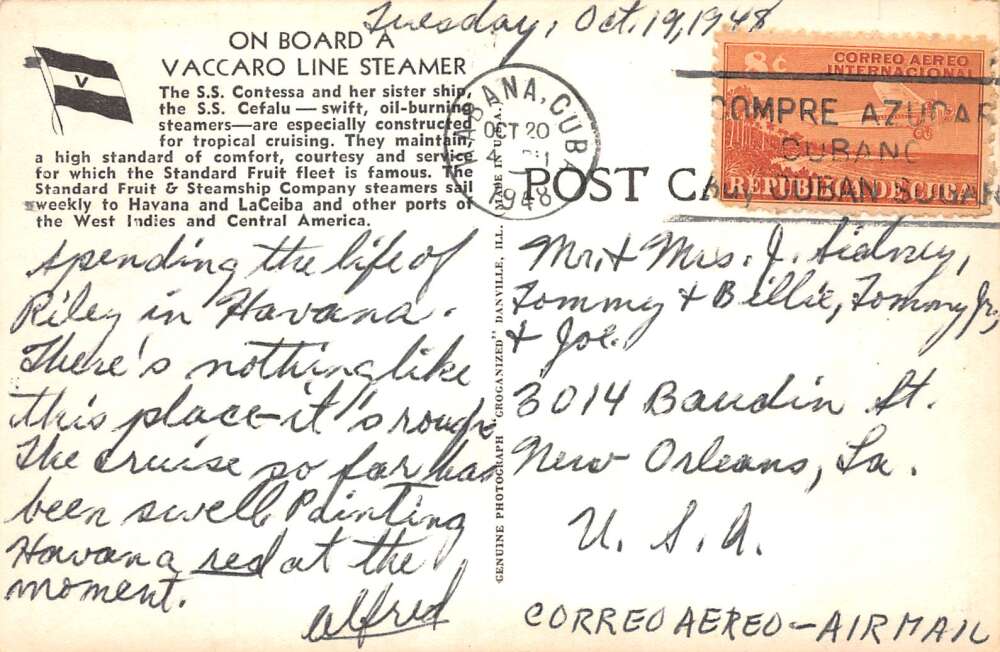 Tuesday, Oct. 19, 1948
ON BOARD A
VACCARO LINE STEAMER
V
The S.S. Contessa and her sister ship,
the S.S. Cefalu — swift, oil-burning
steamers—are especially constructed
for tropical cruising. They maintain,
a high standard of comfort, courtesy and service
for which the Standard Fruit fleet is famous. The
Standard Fruit & Steamship Company steamers sail
weekly to Havana and LaCeiba and other ports of
the West Indies and Central America.
spending the life of
Riley in Havana.
There's nothing like
this place—it's rough
The cruise so far has
been swell. Painting
Havana red at the
moment.
Alfred
HABANA, CUBA
OCT 20
4 PM
1948
8¢
CORREO AEREO
INTERNACIONAL
REPUBLICA DE CUBA
COMPRE AZUCAR
CUBANO
CUBAN SUGAR
POST CA
MADE IN U.S.A.
GENUINE PHOTOGRAPH "GROGANIZED" DANVILLE, ILL.
Mr. & Mrs. J. Sidney,
Tommy & Billie, Tommy Jr.,
& Joe.
3014 Baudin St.
New Orleans, La.
U. S. A.
CORREO AEREO—AIR MAIL